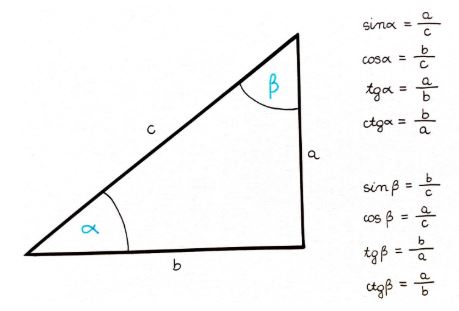 sinα = a/c
cosα = b/c
tgα = a/b
ctgα = b/a
β
c
a
α
b
sin β = b/c
cos β = a/c
tgβ = b/a
ctgβ = a/b